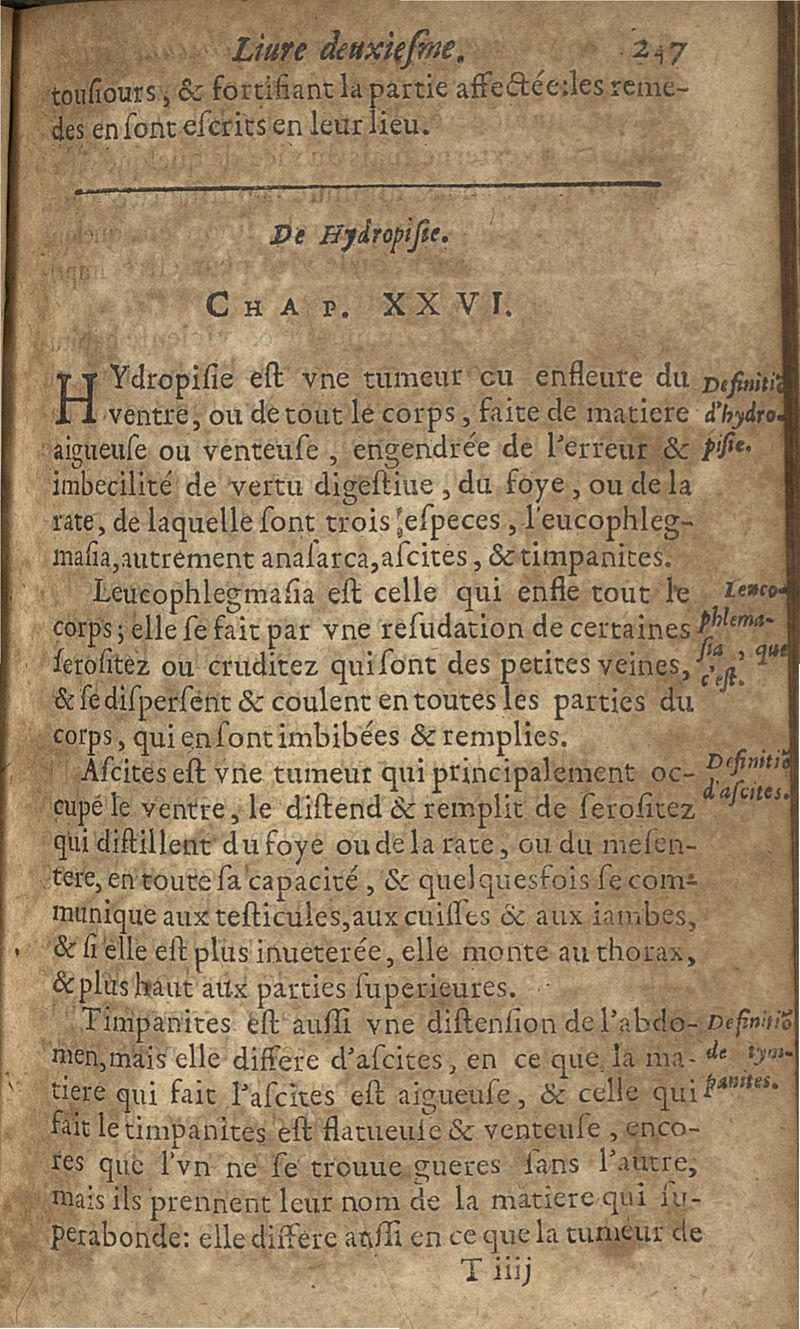 Liure deuxiesme. 247
tousiours, & fortifiant la partie affectée:les reme-
des en sont escrits en leur lieu.
De Hydropisie.
CHAP. XXVI.
HYdropisie est vne tumeur cu enfleure du
ventre, ou de tout le corps, faite de matiere
aigueuse ou venteuse, engendrée de l'erreur &
imbecilité de vertu digestiue, du foye, ou de la
rate, de laquelle sont trois especes, l'eucophleg-
masia,autrement anasarca,ascites, & timpanites.
Definitiõ
d'hydro-
pisie.
Leucophlegmasia est celle qui enfle tout le
corps; elle se fait par vne resudation de certaines
serositez ou cruditez qui sont des petites veines,
& se dispersent & coulent en toutes les parties du
corps, qui en sont imbibées & remplies.
Leuco-
phlema-
sia, que
c'est.
Ascites est vne tumeur qui principalement oc-
cupé le ventre, le distend & remplit de serositez
qui distillent du foye ou de la rate, ou du mesen-
tere, en toute sa capacité, & quelquesfois se com-
munique aux testicules,aux cuisses & aux iambes,
& si elle est plus inueterée, elle monte au thorax,
& plus haut aux parties superieures.
Definitiõ
d'ascites.
Timpanites est aussi vne distension de l'abdo-
men,mais elle differe d'ascites, en ce que la ma-
tiere qui fait l'ascites est aigueuse, & celle qui
fait le timpanites est flatueuse & venteuse, enco-
res que l'vn ne se trouue gueres sans l'autre,
mais ils prennent leur nom de la matiere qui su-
perabonde: elle differe aussi en ce que la tumeur de
Definitiõ
de tym-
panites.
T iiij